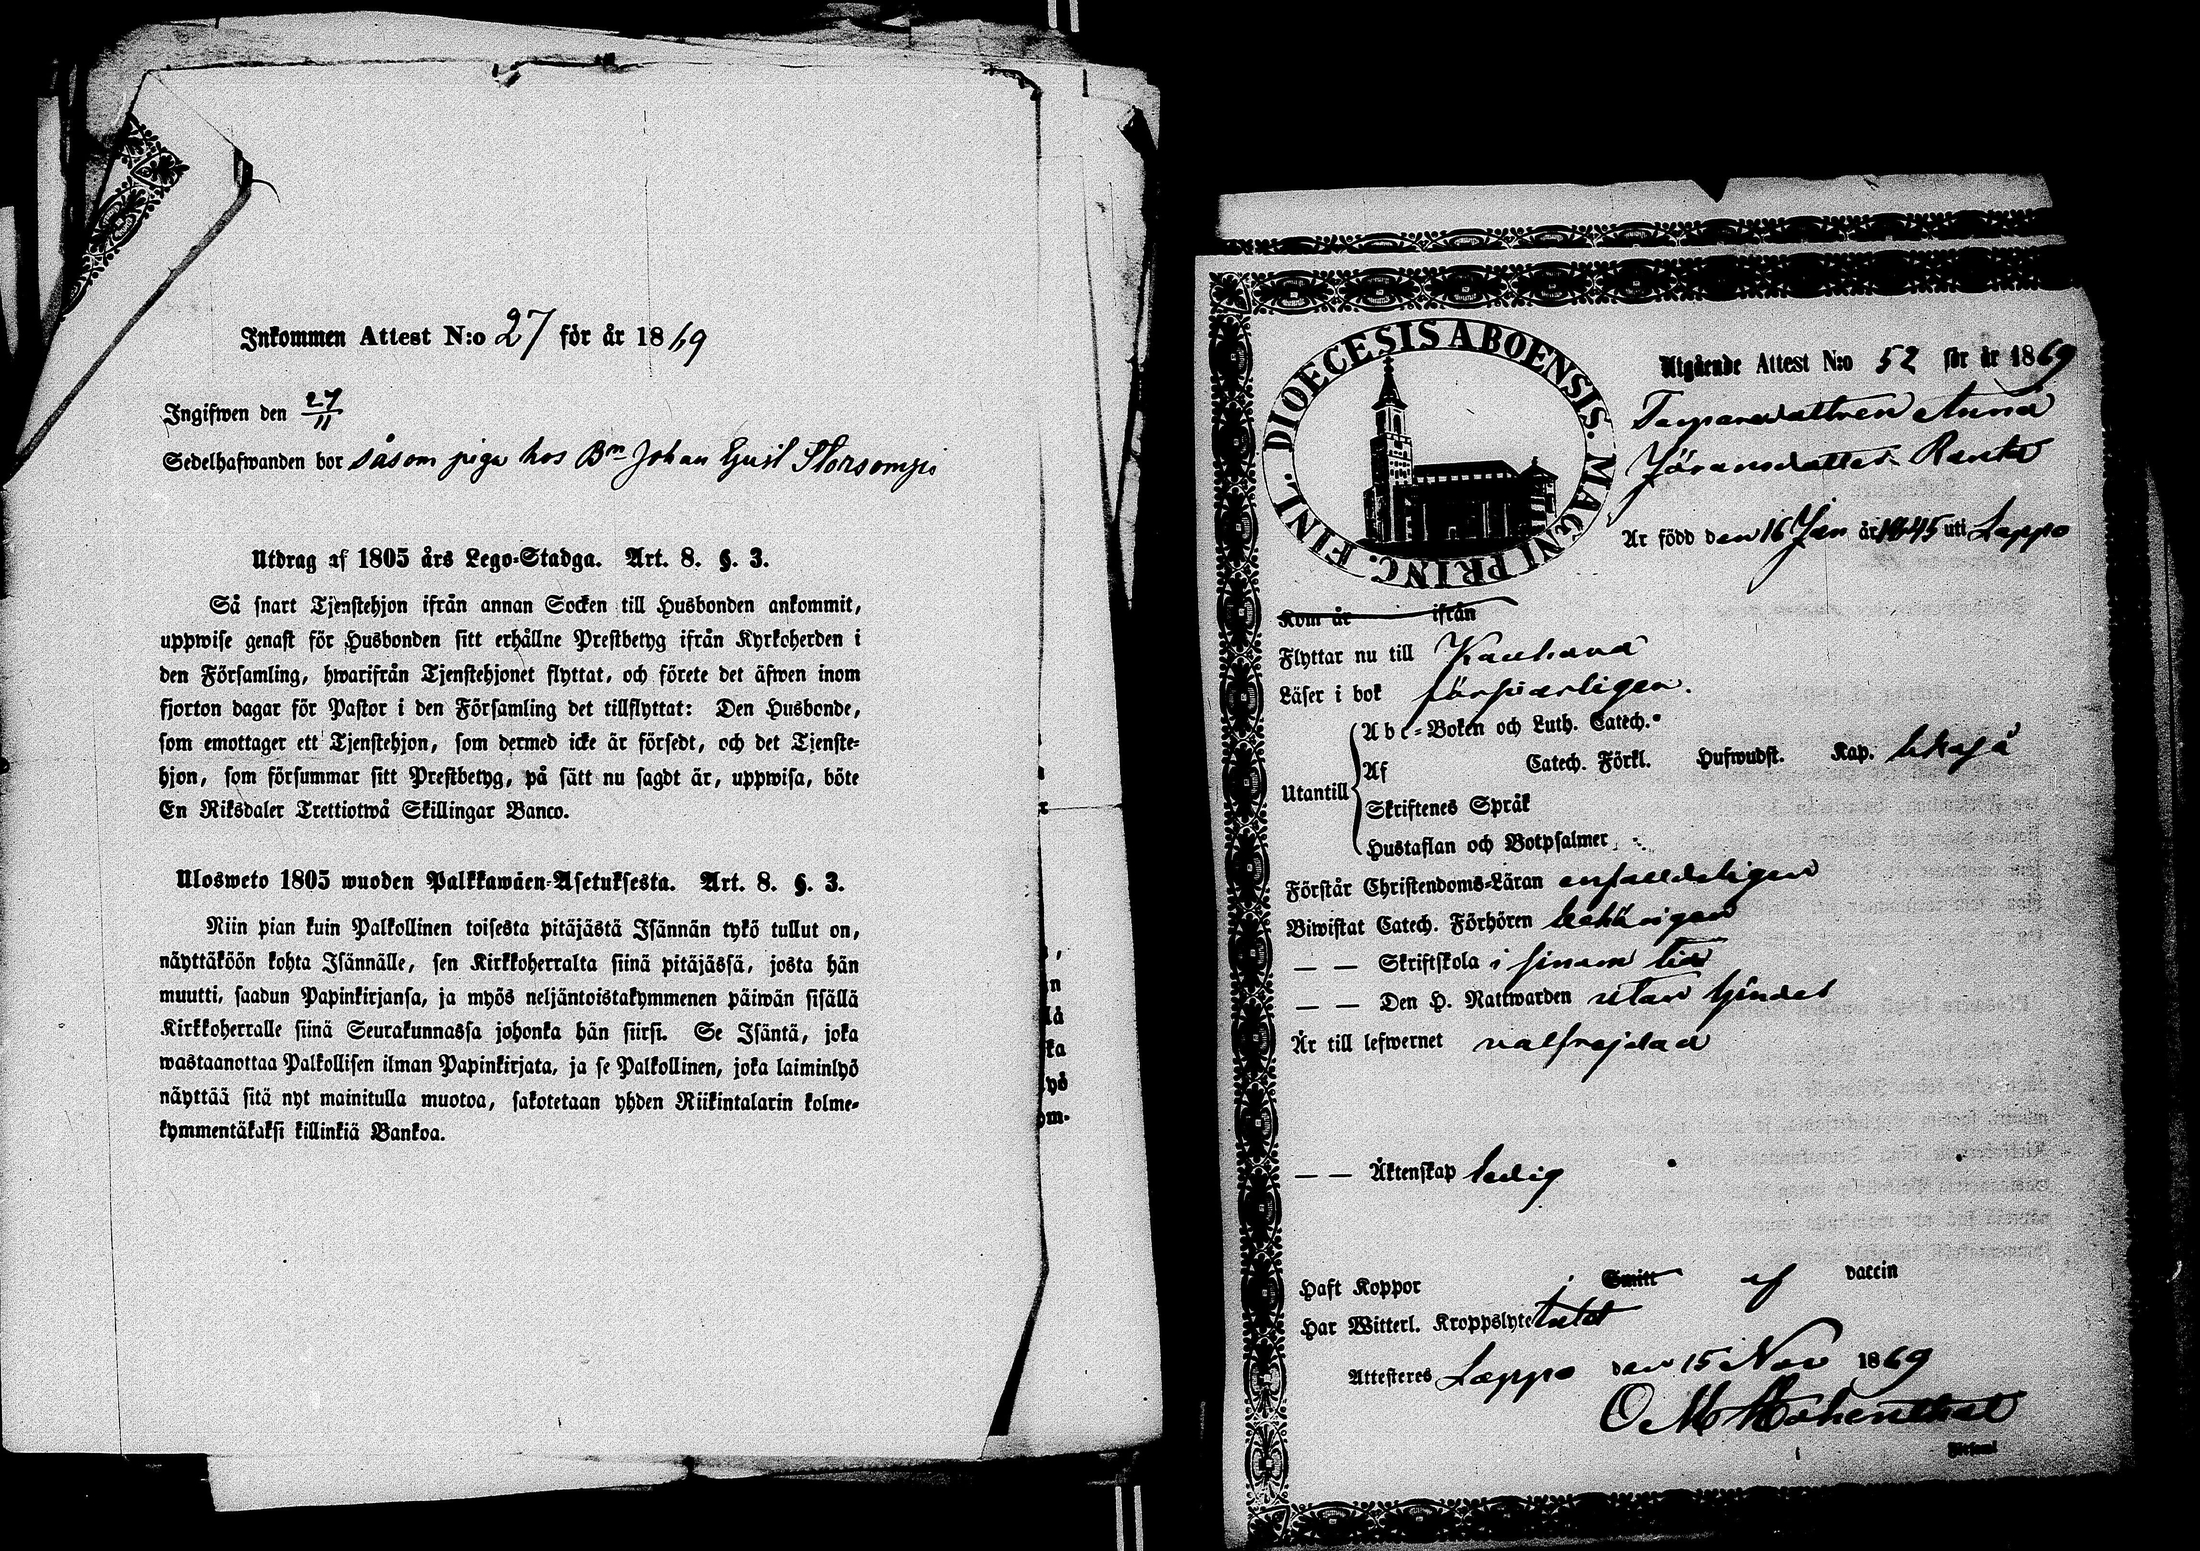 Inkommen Attest N:o 27 för år 1869
Ingifwen den 27/11
Sedelhafwanden bor såsom piga hos Bn Johan Gust Storsompi
Utdrag af 1805 års Lego-Stadga. Art. 8. §. 3.
Så snart Tjenstehjon ifrån annan Socken till Husbonden ankommit,
uppwise genast för Husbonden sitt erhållne Prestbetyg ifrån Kyrkoherden i
den Församling, hwarifrån Tjenstehjonet flyttat, och förete det äfwen inom
fjorton dagar för Pastor i den Församling det tillflyttat: Den Husbonde,
som emottager ett Tjenstehjon, som dermed icke är försedt, och det Tjenste-
hjon, som försummar sitt Prestbetyg, på sätt nu sagdt är, uppwisa, böte
En Riksdaler Trettiotwå Skillingar Banco.
Ulosweto 1805 wuoden Palkkawäen-Asetuksesta. Art. 8. §. 3.
Niin pian kuin Palkollinen toisesta pitäjästä Isännän tykö tullut on,
näyttäköön kohta Isännälle, sen Kirkkoherralta siinä pitäjässä, josta hän
muutti, saadun Papinkirjansa, ja myös neljäntoistakymmenen päiwän sisällä
Kirkkoherralle siinä Seurakunnassa johonka hän siirsi. Se Isäntä, joka
wastaanottaa Palkollisen ilman Papinkirjata, ja se Palkollinen, joka laiminlyö
näyttää sitä nyt mainitulla muotoa, sakotetaan yhden Riikintalarin kolme-
kymmentäkaksi killinkiä Bankoa.
DIOECESIS ABOENSIS. MAGNI PRINC. FINL.
Utgående Attest N:o 52 för år 1869
Torparedottren Anna
Jöransdotter Ranta
Är född den 16 Jan år 1845 uti Lappo
Kom år ifrån
Flyttar nu till Kauhava
Läser i bok försvarligen.
Abc-Boken och Luth. Catech.
Utantill
Af Catech. Förkl. Hufwudst. Kap.
Skriftenes Språk
Hustaflan och Botpsalmer
Förstår Christendoms-Läran enfaldeligen
Biwistat Catech. Förhören behörigen
— — Skriftskola i sinom tid
— — Den H. Nattwarden utan hinder
Är till lefwernet valfrejdad
— — Äktenskap ledig
Haft Koppor Smitt af vaccin
Har Witterl. Kroppslyte intet
Attesteres Lappo den 15 Nov 1869